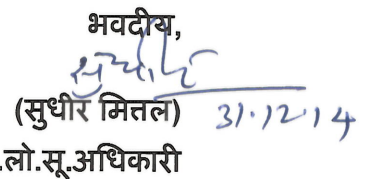 भवदीय,
सुधीर
31.12.14
(सुधीर मित्तल)
.लो.सू.अधिकारी